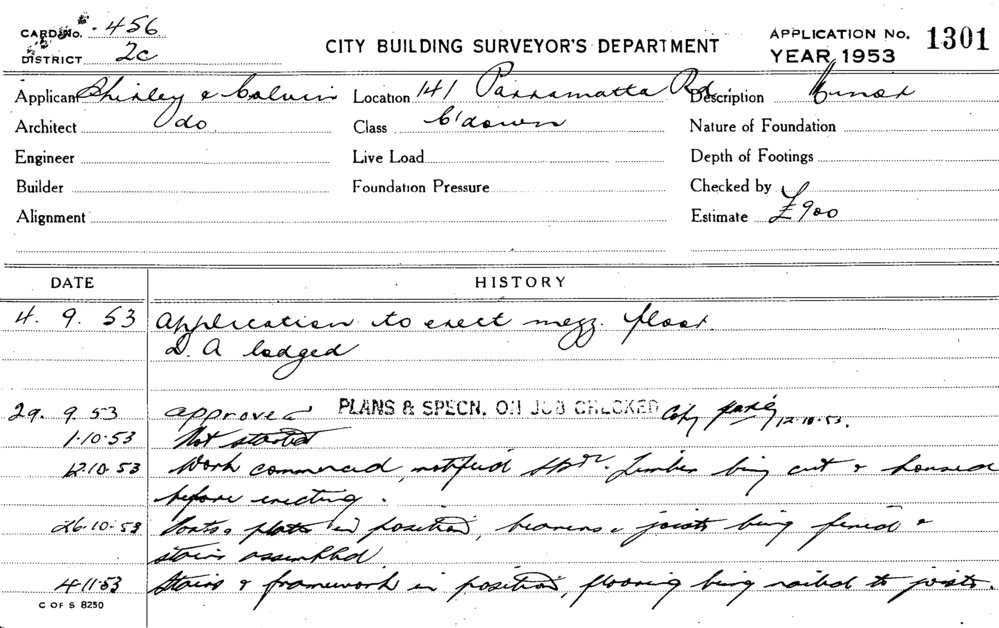 CARD No. 456
DISTRICT 2c
CITY BUILDING SURVEYOR'S DEPARTMENT
APPLICATION No. 1301
YEAR 1953
Applicant Shirley & Colvin Location 141 Parramatta Rd. Description Minor
Architect do Class C'down Nature of Foundation
Engineer Live Load Depth of Footings
Builder Foundation Pressure Checked by
Alignment Estimate £900
DATE HISTORY
4. 9. 53 Application to erect mezz. floor.
D. A lodged
29. 9. 53 approved PLANS & SPECN. ON JOB CHECKED 12.10.53.
1.10.53 Not started
12.10.53 Work commenced, notified Timber being cut & housed
before erecting.
26.10.53 Posts & plates in position, bearers & joists being fixed &
stairs assembled
4.11.53 Stairs & framework in position, flooring being nailed to joists.
C OF S 8250